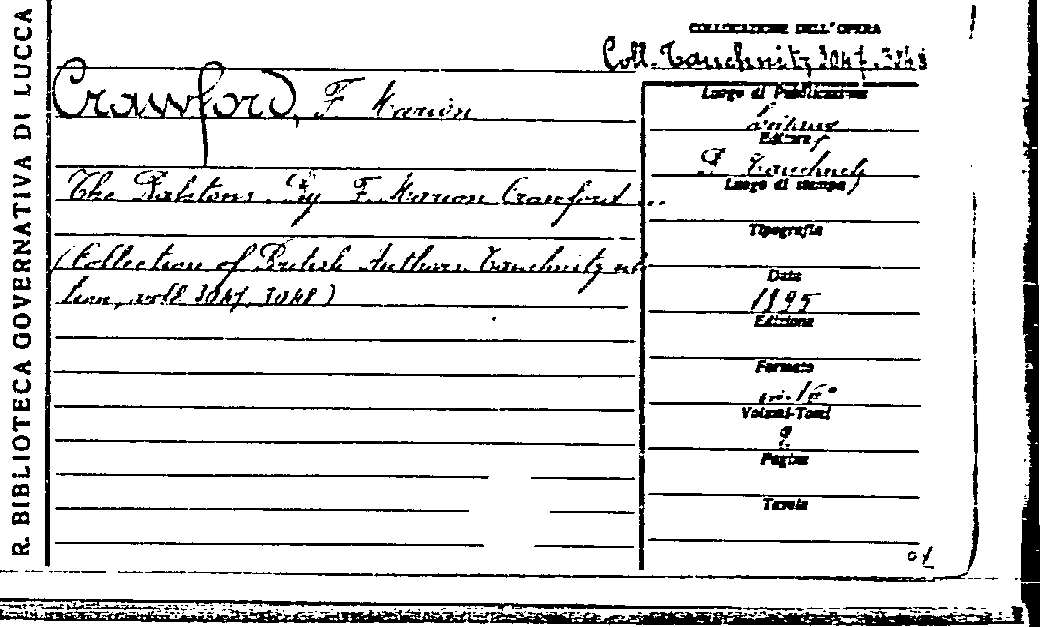 R. BIBLIOTECA GOVERNATIVA DI LUCCA
COLLOCAZIONE DELL'OPERA
Coll. Tauchnitz 3047-3048
Crawford, F. Marion
The Ralstons. By F. Marion Crawford ...
(Collection of British Authors. Tauchnitz edi-
tion, voll 3047, 3048)
Luogo di Pubblicazione
Leipzig
Editore
B. Tauchnitz
Luogo di stampa
Tipografia
Data
1895
Edizione
Formato
in-16°
Volumi-Tomi
2
Pagine
Tavole